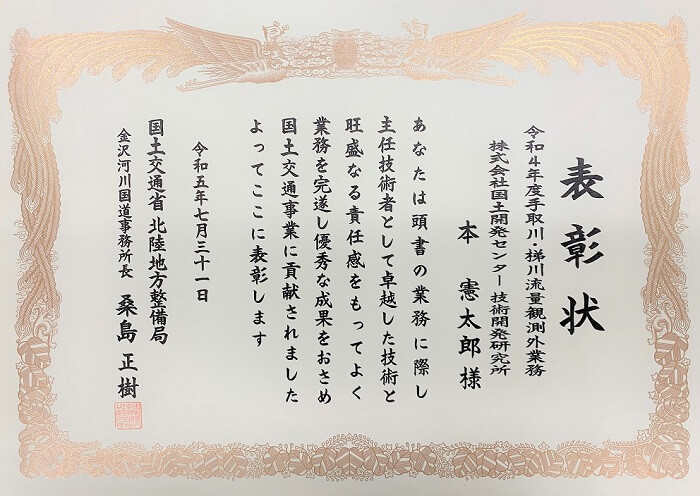 表彰状
令和4年度手取川・梯川流量観測外業務
株式会社国土開発センター 技術開発研究所
本 憲太郎 様
あなたは頭書の業務に際し
主任技術者として卓越した技術と
旺盛なる責任感をもってよく
業務を完遂し優秀な成果をおさめ
国土交通事業に貢献されました
よってここに表彰します
令和五年七月三十一日
国土交通省 北陸地方整備局
金沢河川国道事務所長 桑島 正樹